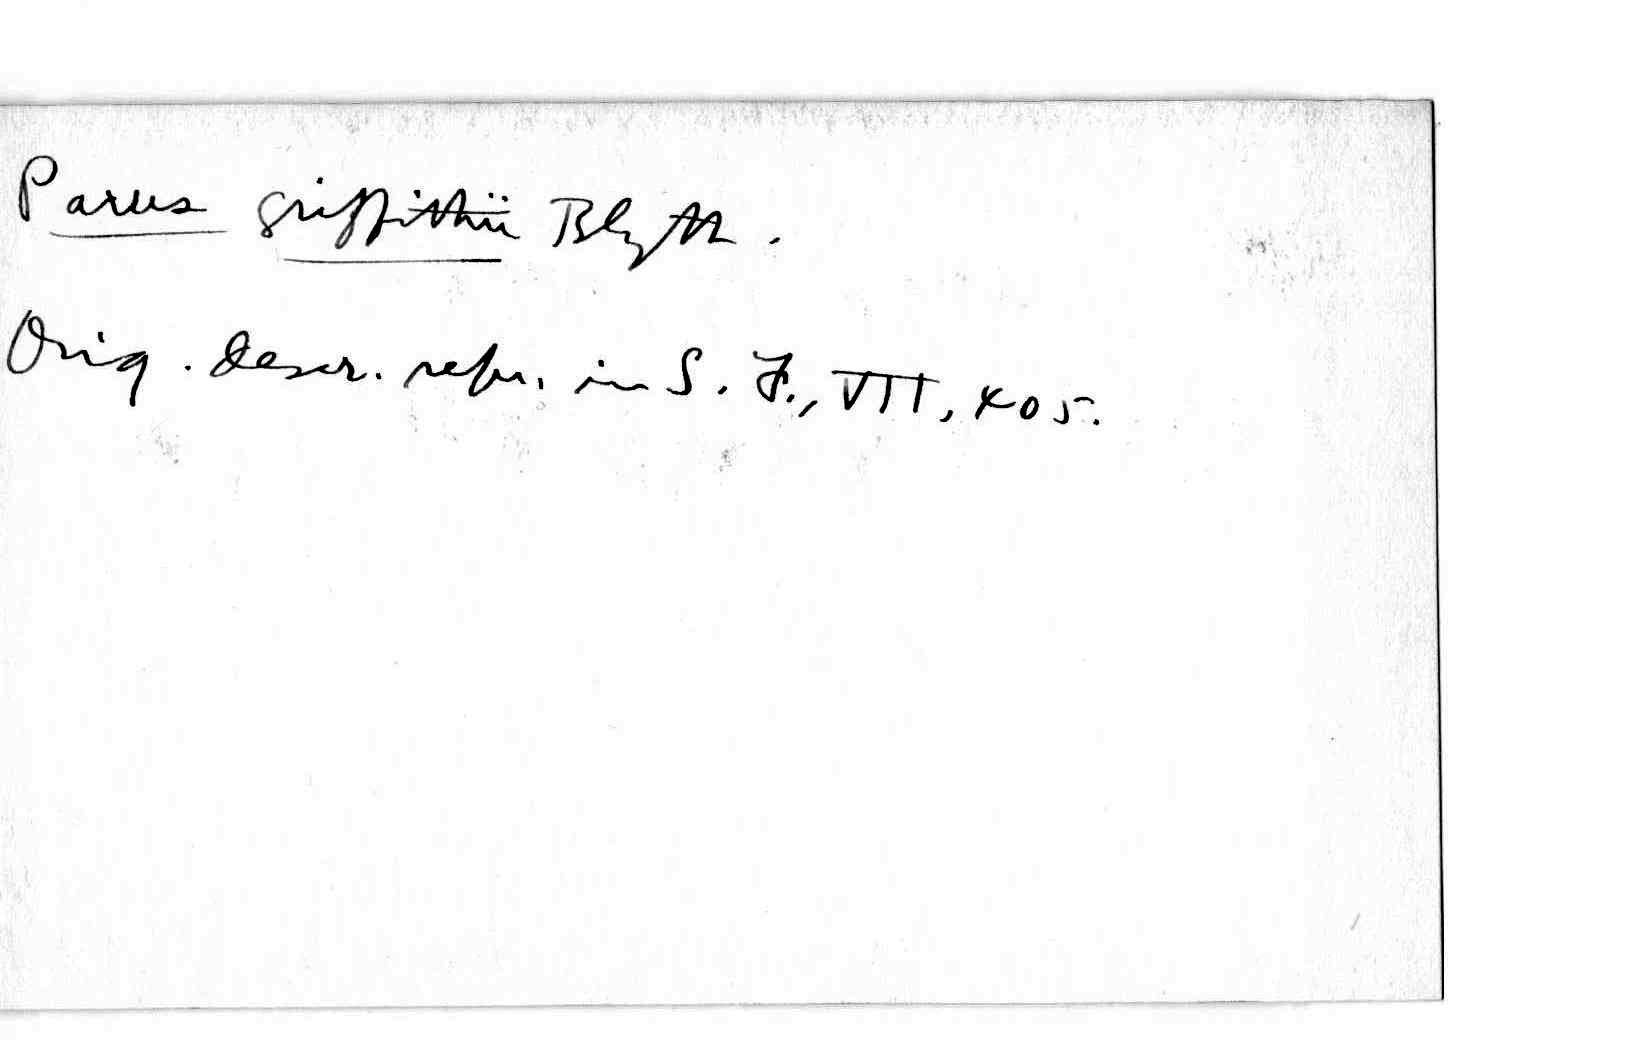 Parus griffithii Blyth.
Orig. descr. repr. in S. F., VII, 405.